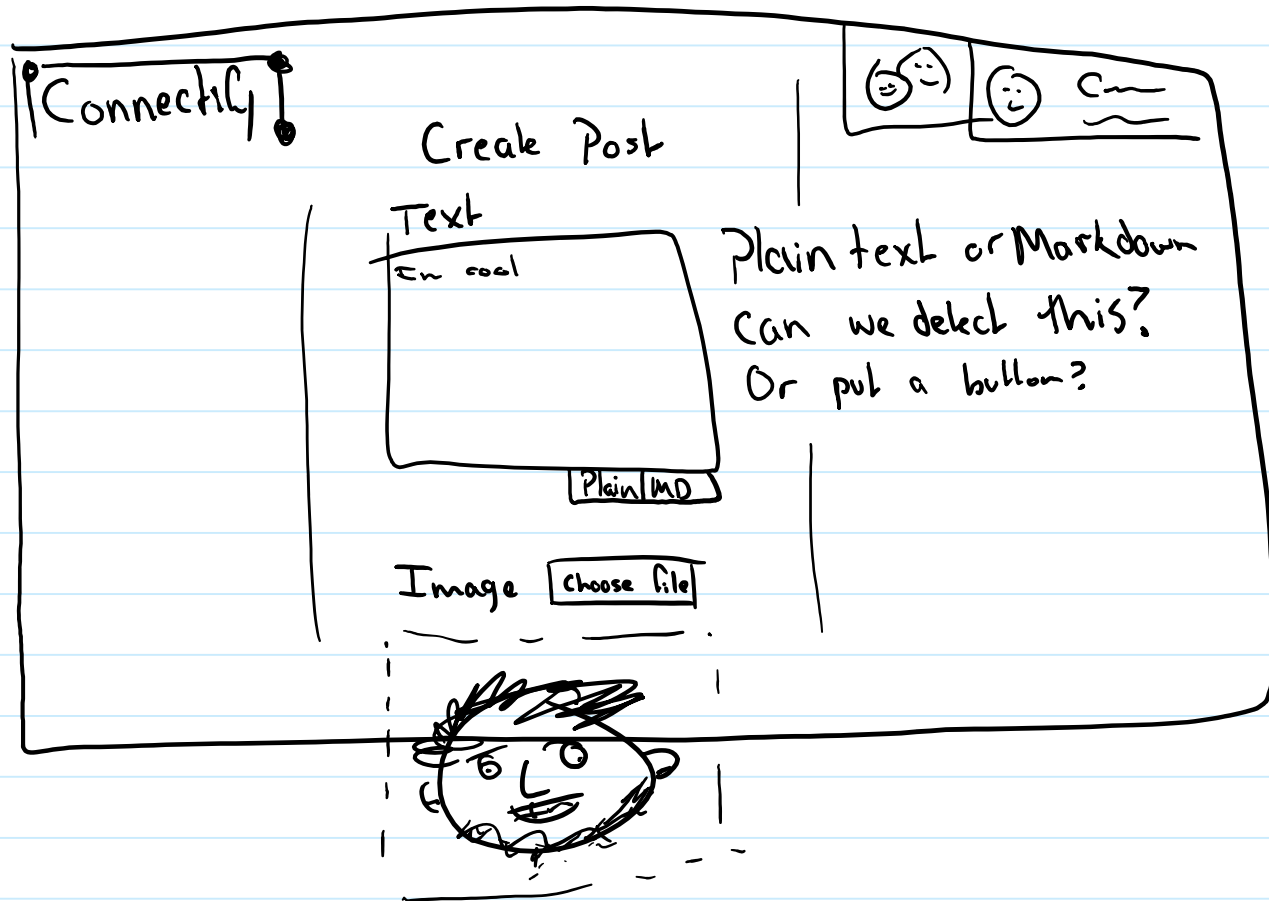 Connectify
Create Post
Text
Im cool
Plain text or Markdown
Can we detect this?
Or put a button?
Plain MD
Image Choose file